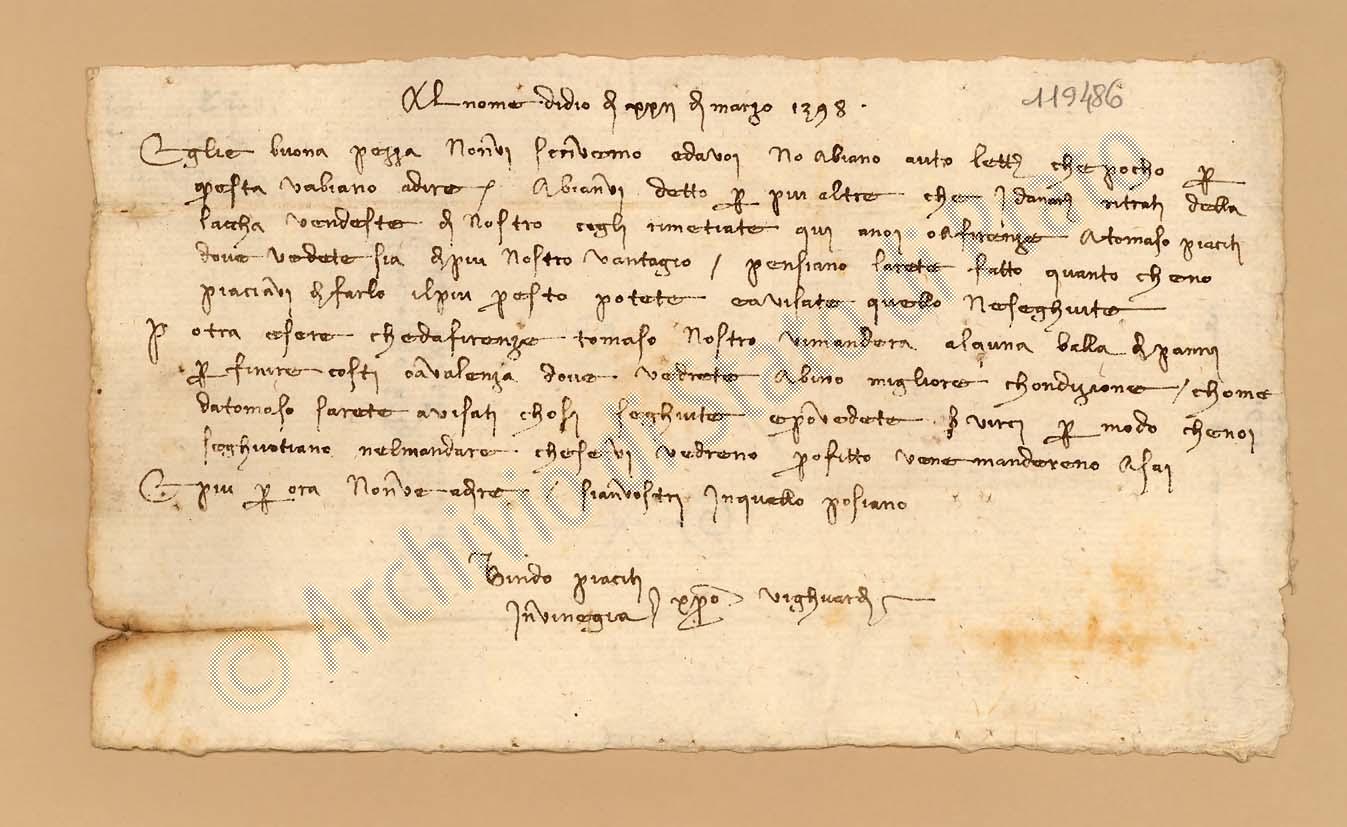 Al nome didio di xxii di marzo 1398
119486
Eglie buona pezza nonvi scrivemo edavoi no abiano auto lettera chepocho per
questa vabiano adire / Abianvi detto per piu altre che i danari ritrati della
laccha vendeste di nostro cegli rimetiate qui anoi oafirenze atomaso piaciti
dove vedete sia dipiu nostro vantagio / pensiano larete fatto quanto cheno
piacavi difarlo ilpiu presto potete eavisate quello neseghuite
Potra esere chedafirenze tomaso nostro vimandera alquna balla di panni
per finire costi oavalenza dove vedrete abino migliore chondizione / chome
datomaso sarete avisati chosi seghuite eprovedete servirci per modo chenoi
seghuotiano nelmandare chesevi vedreno profitto vene mandereno asai
E piu per ora nonve adire / sianvostri inquello posiano
Bindo piaciti
Invinegia / xpo vighuardi
© Archivio di Stato di Prato